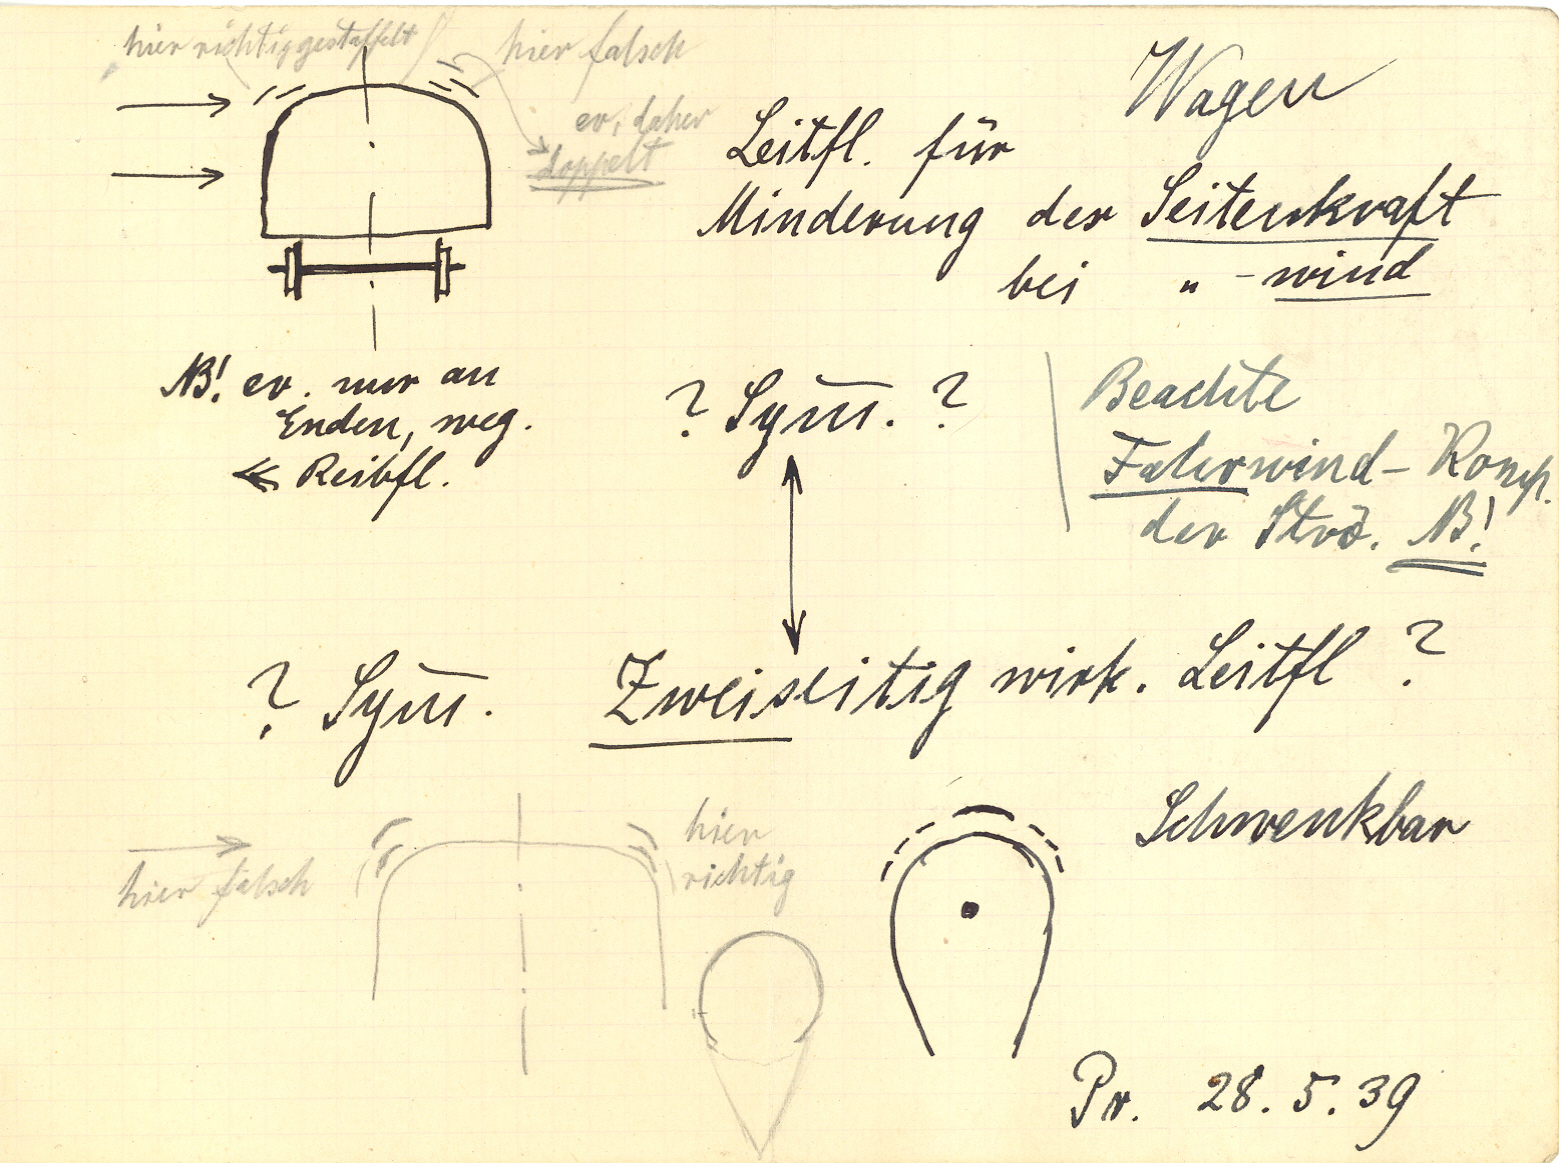 hier richtig gestaffelt
hier falsch
ev. daher
doppelt
Wagen
Leitfl. für
Minderung der Seitenkraft
bei " -wind
NB! ev. nur an
Enden, weg.
Reibfl.
? Sym̅. ?
Beachte
Fahrwind-Komp.
der Strö. NB!
? Sym̅. Zweiseitig wirk. Leitfl ?
hier falsch
hier
richtig
Schwenkbar
Pr. 28.5.39